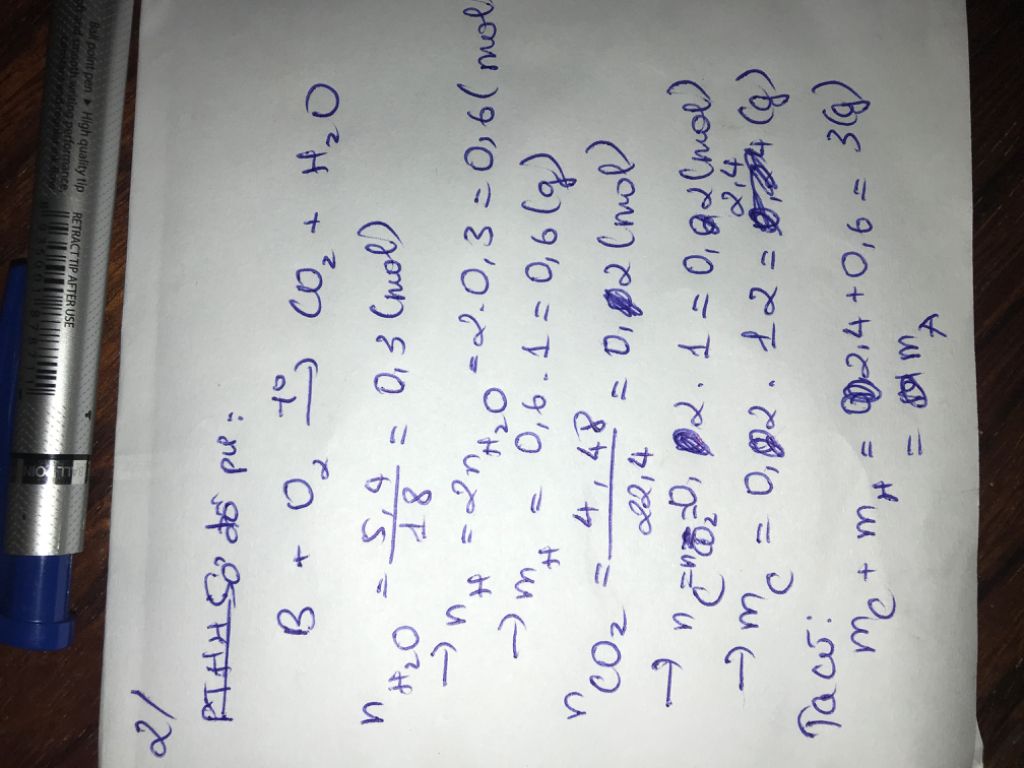 Ball point pen • High quality tip
and smooth writing performance.
RETRACT TIP AFTER USE
2/
PTHH Sơ đồ pư:
B + O₂ t° → CO₂ + H₂O
n H₂O = 5,4/18 = 0,3 (mol)
→ n H = 2n H₂O = 2.0,3 = 0,6 (mol
→ m H = 0,6.1 = 0,6 (g)
n CO₂ = 4,48/22,4 = 0,2 (mol)
→ n C = n CO₂ = 0,2.1 = 0,2 (mol)
→ m C = 0,2.12 = 2,4 (g)
Ta có:
m C + m H = 2,4 + 0,6 = 3 (g)
= m A